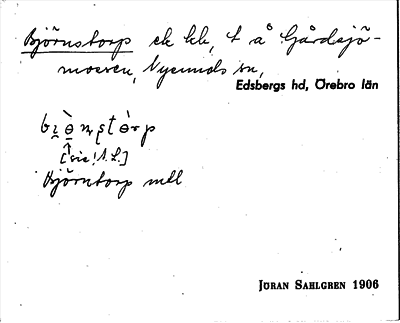 Björnstorp ek hh, t å Gårdsjö-
moeren, Nysunds sn,
Edsbergs hd, Örebro län
[sic! J.S.]
Björntorp mtl
JÖRAN SAHLGREN 1906